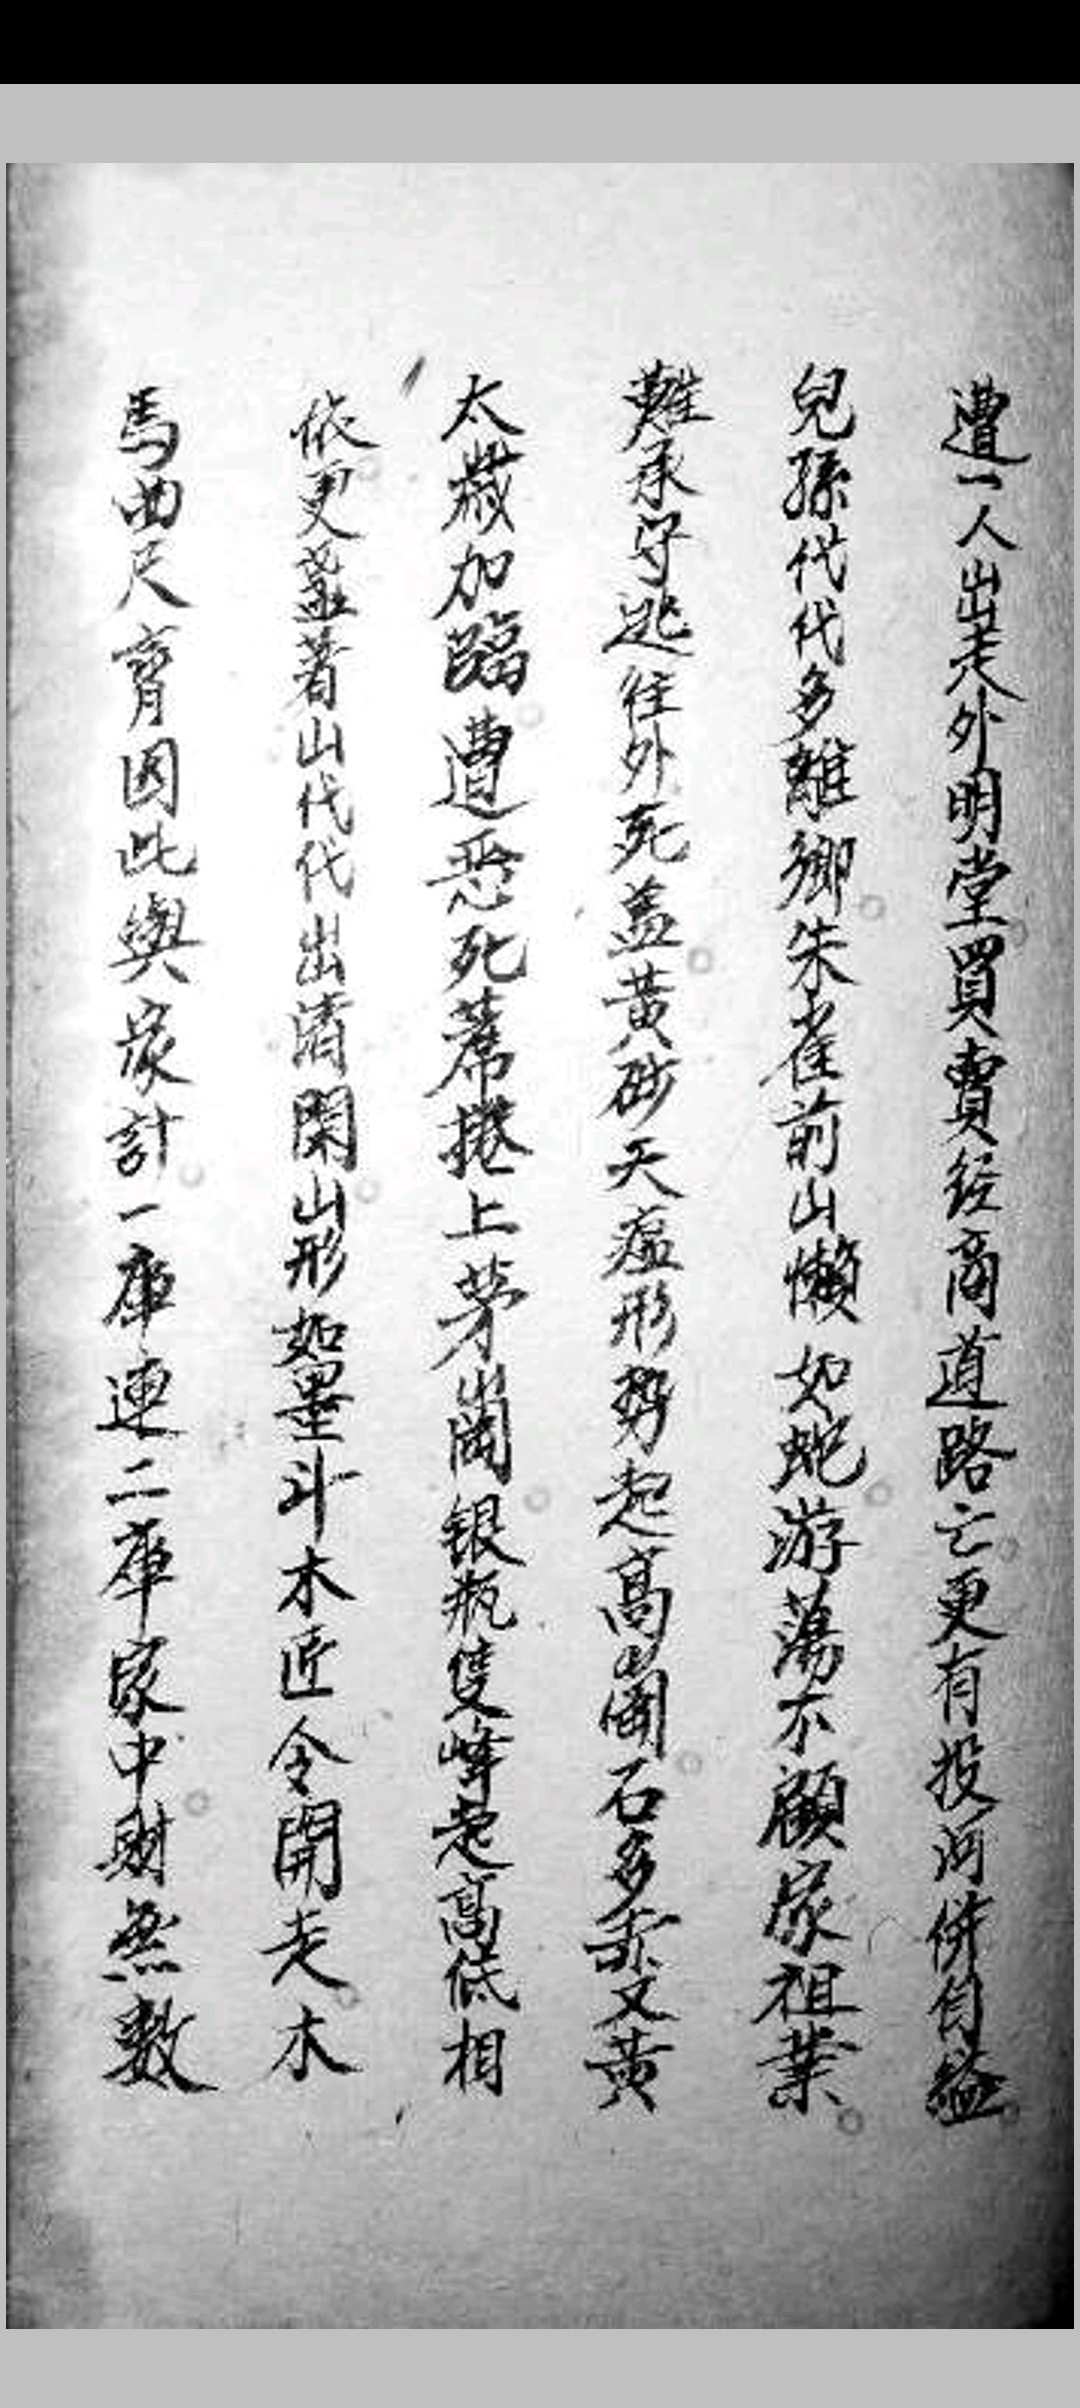 遭一人出走外明堂買賣经商道路亡更有投河併自縊
兒孫代代多離鄉朱雀前山懶如蛇游蕩不顧家祖業
難承守逃往外死盖黃砂天瘟形势起高崗石多赤又黃
太歲加臨遭恶死蓆捲上茅崗银瓶隻峰起高低相
依更盖著山代代出清閑山形如墨斗木匠令開走木
馬曲尺齊因此與家計一庫連二庫家中財無數